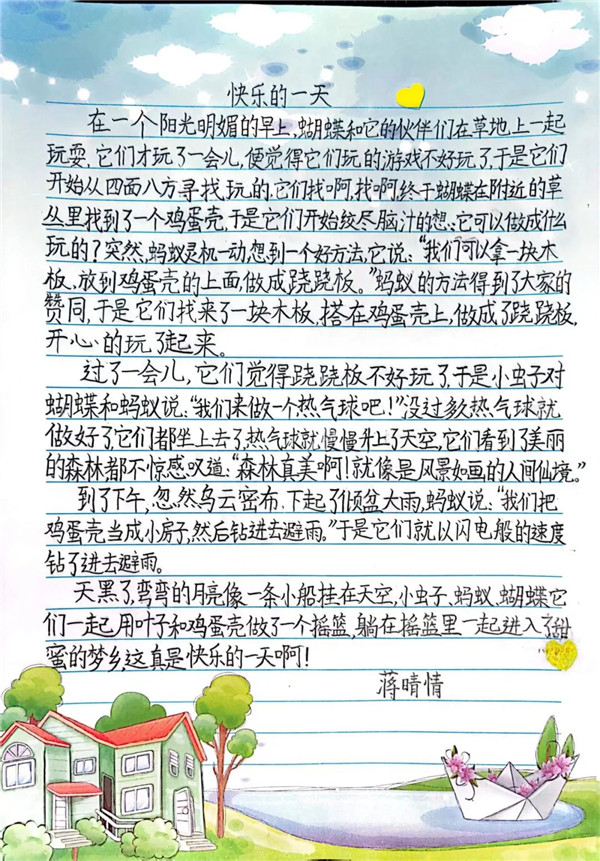 快乐的一天
在一个阳光明媚的早上,蝴蝶和它的伙伴们在草地上一起
玩耍,它们才玩了一会儿,便觉得它们玩的游戏不好玩了,于是它们
开始从四面八方寻找玩的,它们找啊,找啊,终于蝴蝶在附近的草
丛里找到了一个鸡蛋壳,于是它们开始绞尽脑汁的想:它可以做成什么
玩的?突然,蚂蚁灵机一动,想到一个好方法,它说:“我们可以拿一块木
板,放到鸡蛋壳的上面,做成跷跷板。”蚂蚁的方法得到了大家的
赞同,于是它们找来了一块木板,搭在鸡蛋壳上,做成了跷跷板,
开心的玩了起来。
过了一会儿,它们觉得跷跷板不好玩了,于是小虫子对
蝴蝶和蚂蚁说:“我们来做一个热气球吧!”没过多久热气球就
做好了,它们都坐上去了,热气球就慢慢升上了天空,它们看到了美丽
的森林都不惊感叹道:“森林真美啊!就像是风景如画的人间仙境。”
到了下午,忽然乌云密布、下起了倾盆大雨,蚂蚁说:“我们把
鸡蛋壳当成小房子,然后钻进去避雨。”于是它们就以闪电般的速度
钻了进去避雨。
天黑了,弯弯的月亮像一条小船挂在天空,小虫子、蚂蚁、蝴蝶它
们一起用叶子和鸡蛋壳做了一个摇篮,躺在摇篮里一起进入了甜
蜜的梦乡,这真是快乐的一天啊!
蒋晴情